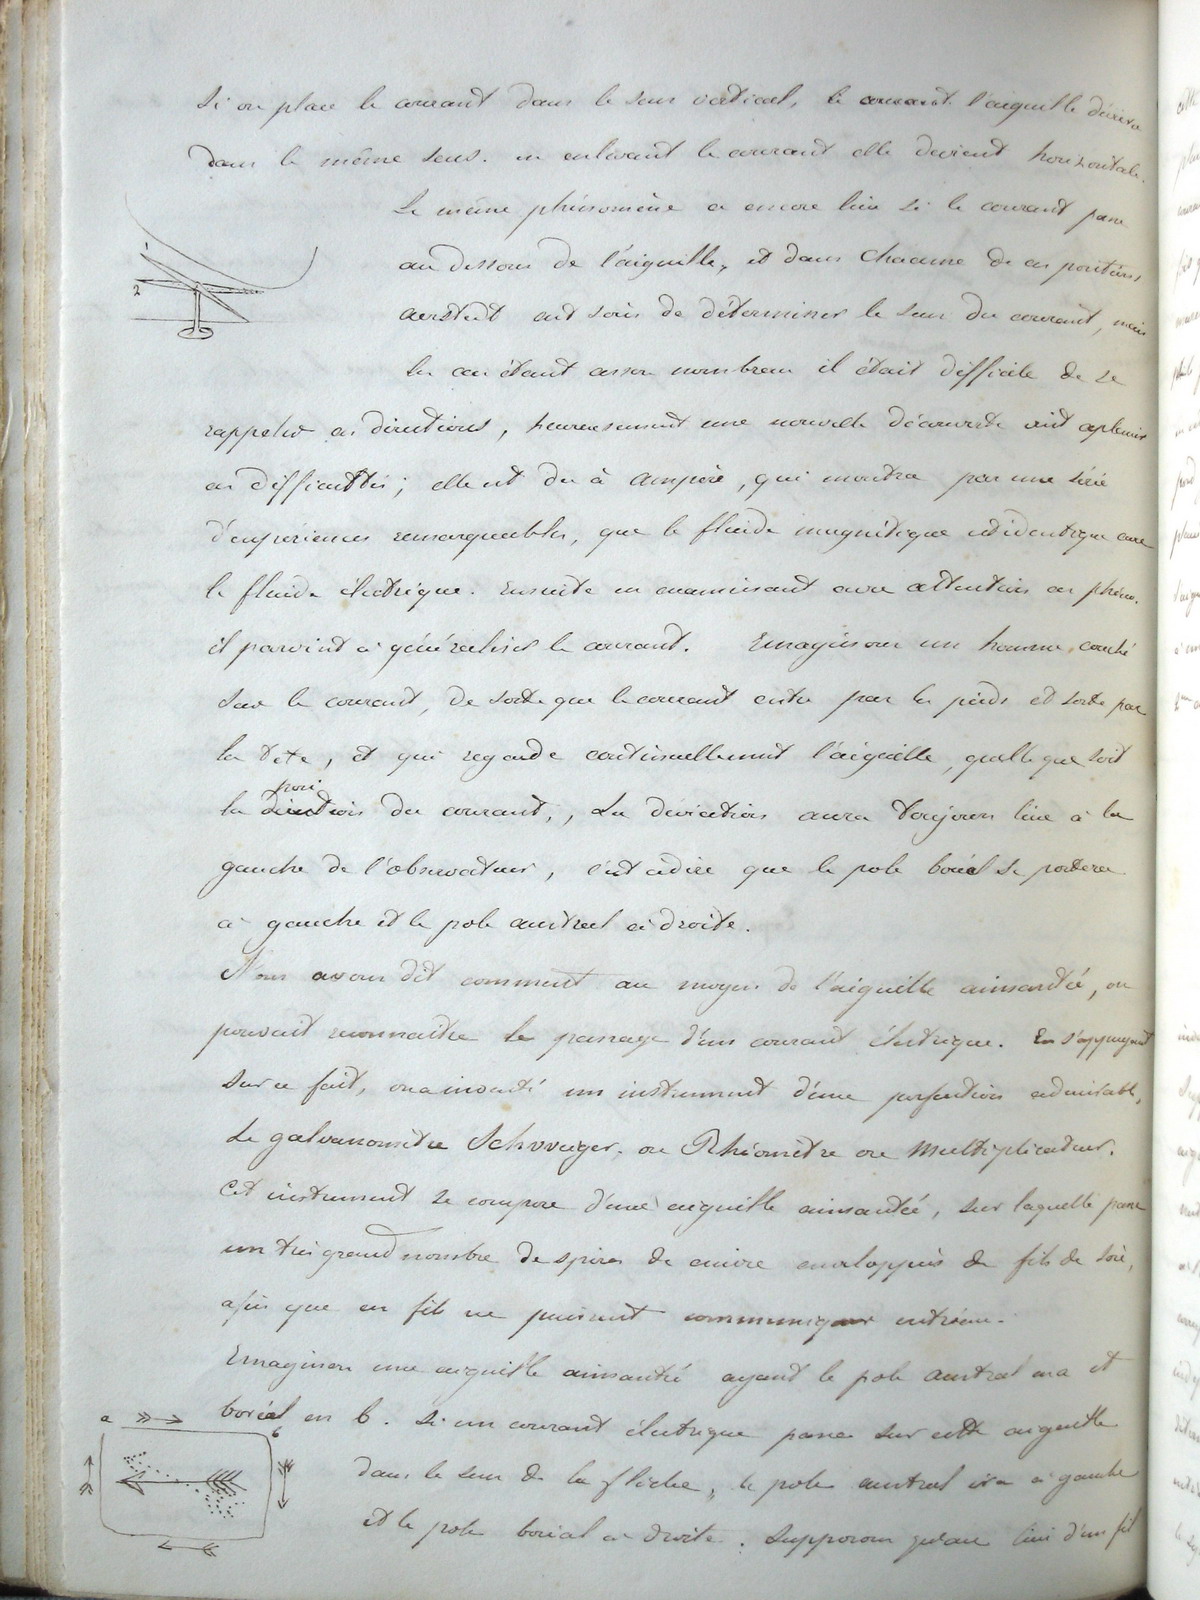 Si on place le courant dans le sens vertical, le courant l'aiguille déviera
dans le même sens. en enlevant le courant elle devient horizontale.
Le même phénomène a encore lieu si le courant passe
au dessous de l'aiguille, et dans chacune de ces positions
aerstedt eut soin de déterminer le sens du courant, mais
les cas étant assez nombreux il était difficile de se
rappeler ces directions, heureusement une nouvelle découverte vint aplanir
ces difficultés; elle est du à Ampère, qui montra par une série
d'expériences remarquables, que le fluide magnétique est identique avec
le fluide électrique. Ensuite en examinant avec attention ces phéno.
il parvint à généraliser le courant. Imaginons un homme couché
sur le courant, de sorte que le courant entre par les pieds et sorte par
la tete, et qui regarde continuellement l'aiguille, quelle que soit
posi
la direction du courant, La déviation aura toujours lieu à la
gauche de l'observateur, c'est à dire que le pole boréal se portera
à gauche et le pole austral à droite.
Nous avons dit comment au moyen de l'aiguille aimantée, on
pouvait reconnaitre le passage d'un courant électrique. En s'appuyant
sur ce fait, on a inventé un instrument d'une perfection admirable,
Le galvanomètre Schvveiger, ou Rhéomètre ou Multiplicateur.
Cet instrument se compose d'une aiguille aimantée, sur laquelle passe
un très grand nombre de spires de cuivre enveloppés de fils de soie,
afin que ces fils ne puissent communiquer entr'eux.
Imaginons une aiguille aimantée ayant le pole austral en a et
boréal en b. Si un courant électrique passe sur cette aiguille
dans le sens de la flèche, le pole austral ira à gauche
et le pole boréal à droite. Supposons qu'au lieu d'un fil
1
2
a
b